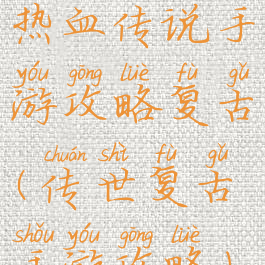 热血传说手
yóu gōng lüè fù gǔ
游攻略复古
chuán shì fù gǔ
(传世复古
shǒu yóu gōng lüè
手游攻略)